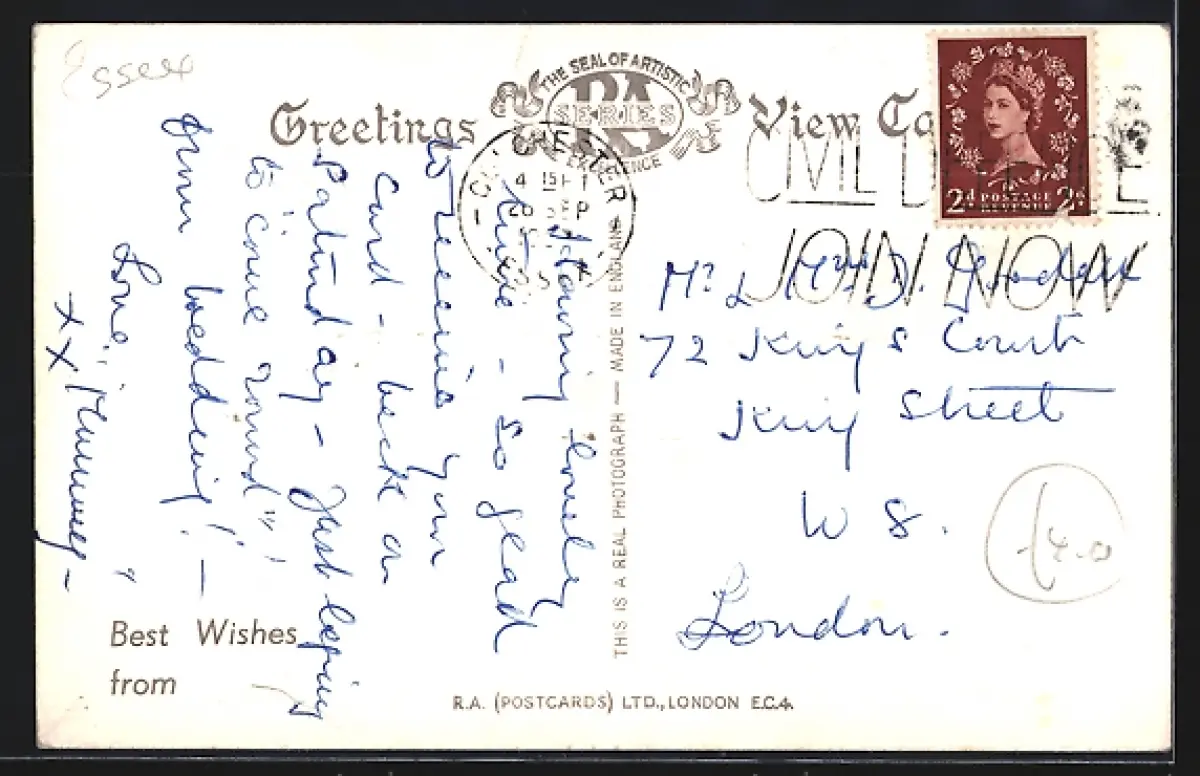 Essex
Greetings
THE SEAL OF ARTISTIC
RA
SERIES
EXCELLENCE
View Ca
CHESTER
4 15 PM
20 SEP
CIVIL D
JOIN NOW
2d POSTAGE 2d
REVENUE
Having lovely
time - so glad
to receive your
card - back on
Saturday - Just
to come round"!
from wedding! —
Love,
x x Mummy -
Mr & Mrs D.
72 King's Court
King Street
W 8.
London.
£4.0
THIS IS A REAL PHOTOGRAPH — MADE IN ENGLAND
Best Wishes
from
R.A. (POSTCARDS) LTD., LONDON E.C.4.